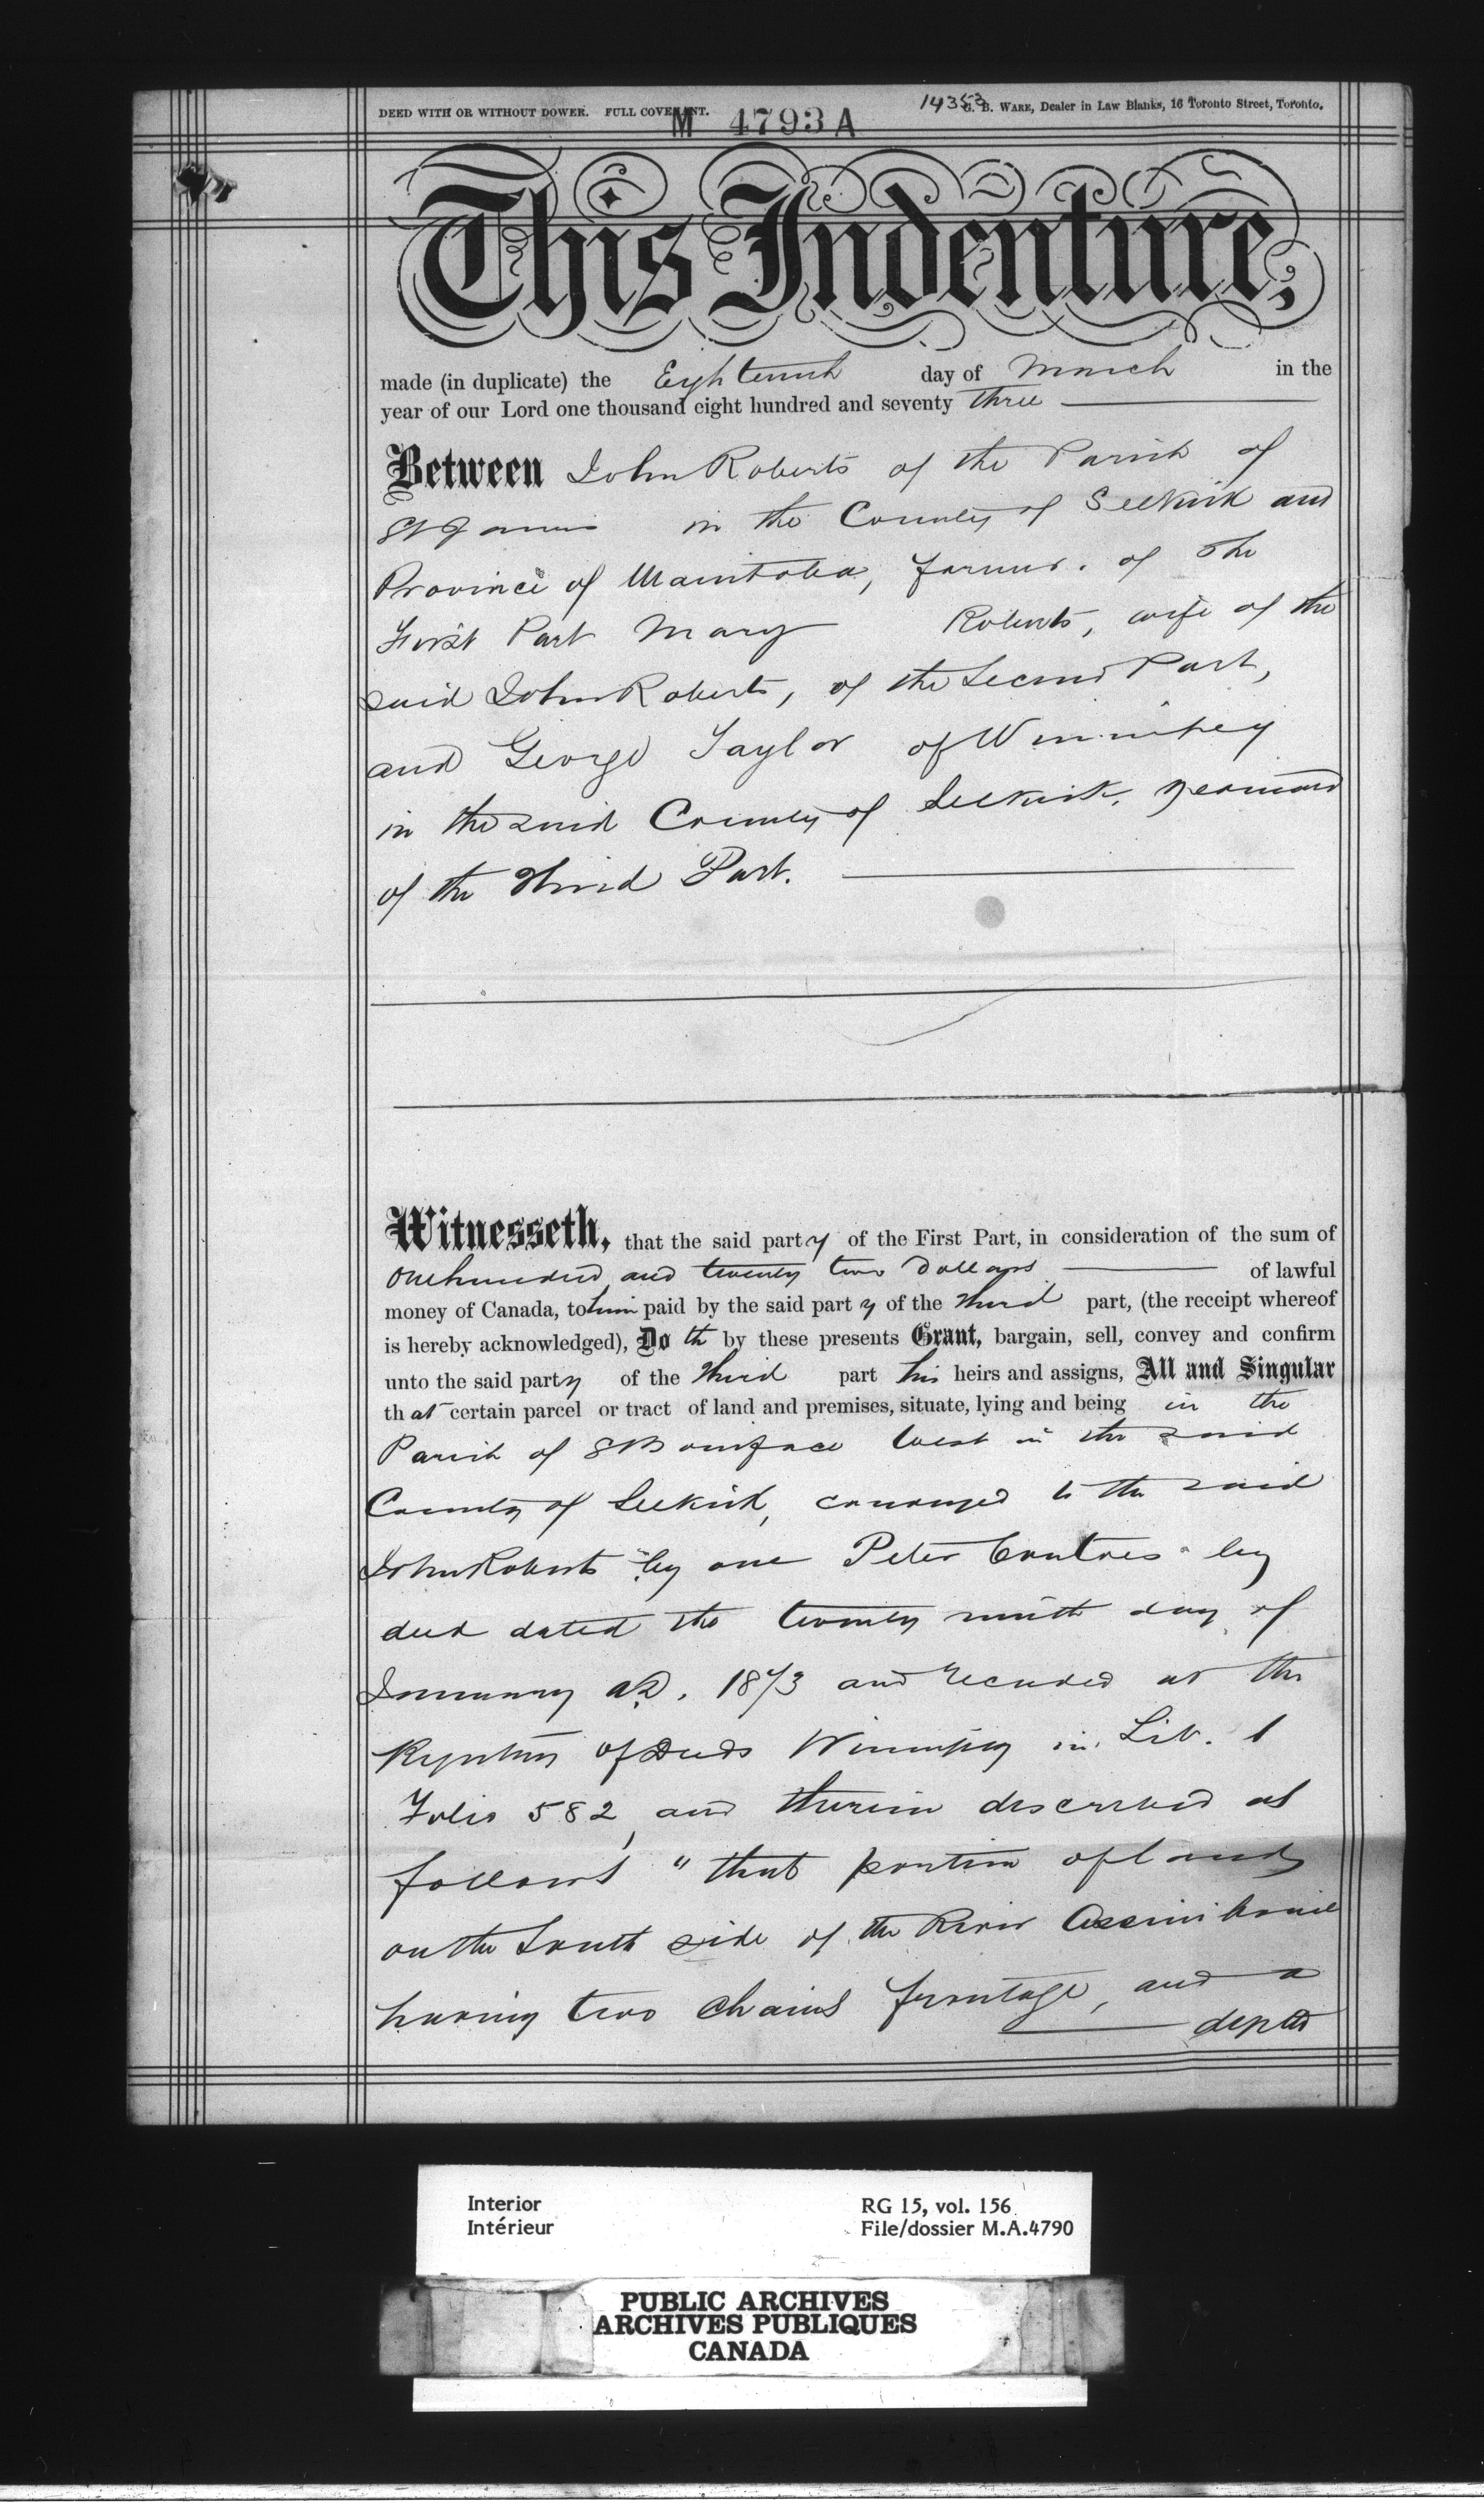 DEED WITH OR WITHOUT DOWER. FULL COVENANT.
14353
G. B. WARE, Dealer in Law Blanks, 16 Toronto Street, Toronto.
M 4793 A
This Indenture,
made (in duplicate) the Eighteenth day of March in the
year of our Lord one thousand eight hundred and seventy three
Between John Roberts of the Parish of
St James in the County of Selkirk and
Province of Manitoba, farmer. of The
First Part Mary Roberts, wife of the
said John Roberts, of the Second Part,
and George Taylor of Winnipeg
in the said County of Selkirk, Yeoman
of the Third Part.
Witnesseth, that the said party of the First Part, in consideration of the sum of
One hundred and twenty two Dollars of lawful
money of Canada, to him paid by the said party of the third part, (the receipt whereof
is hereby acknowledged), Do th by these presents Grant, bargain, sell, convey and confirm
unto the said party of the third part his heirs and assigns, All and Singular
that certain parcel or tract of land and premises, situate, lying and being in the
Parish of St Boniface West in the said
County of Selkirk, conveyed to the said
John Roberts by one Peter by
deed dated the twenty ninth day of
January AD. 1873 and recorded at the
Registry of Deeds Winnipeg in Lib. 1
Folio 582, and therein described as
follows "that portion of land
on the South side of the River Assiniboine
having two chains frontage, and a
depth
Interior
Intérieur
RG 15, vol. 156
File/dossier M.A.4790
PUBLIC ARCHIVES
ARCHIVES PUBLIQUES
CANADA